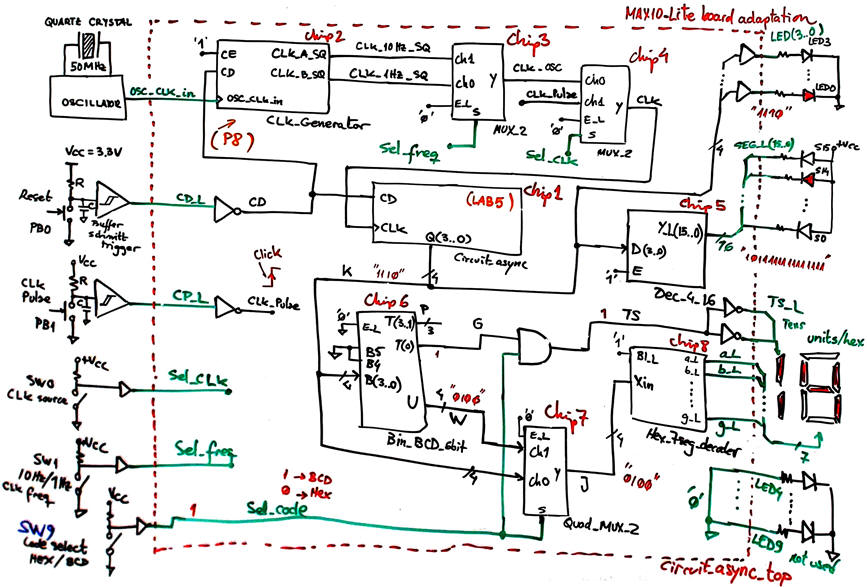 MAX10-Lite board adaptation
QUARTZ CRYSTAL
50MHz
OSCILLATOR
OSC_CLK_in
'1'
CE
CD
OSC_CLK_in
chip2
CLK_A_SQ
CLK_B_SQ
CLK_Generator
(P8)
CLK_10Hz_SQ
CLK_1Hz_SQ
Chip3
ch1
ch0
E_L
S
Y
'0'
MUX_2
Sel_freq
CLK_OSC
CLK_Pulse
Chip4
Ch0
ch1
E_L
S
Y
'0'
MUX_2
Sel_CLK
CLK
LED(3..0)
LED3
LED0
"1110"
4
SEG_L(15..0)
+Vcc
S15
S14
S0
"1011111111111111"
Vcc = 3.3V
R
C
Reset
PB0
Buffer
schmitt
trigger
CD_L
CD
chip1
(LAB5)
CD
CLK
Q(3..0)
Circuit async
4
Chip5
Y_L(15..0)
D(3..0)
E
'1'
16
Dec_4_16
Vcc
R
C
CLK
Pulse
PB1
CP_L
CLK_Pulse
Click
K
"1110"
Chip6
'0'
E_L
B5
B4
B(3..0)
T(3..1)
T(0)
U
P
3
1
4
Bin_BCD_6bit
G
1
TS
TS_L
Tens
units/hex
4
"0100"
W
chip8
'1'
BI_L
Xin
a_L
b_L
g_L
Hex_7seg_decoder
7
+Vcc
SW0
CLK source
Sel_CLK
+Vcc
SW1
10Hz/1Hz
CLK freq
Sel_freq
Chip7
'0'
E_L
Ch1
Ch0
S
Y
4
J
4
"0100"
Quad_MUX_2
Vcc
SW9
Code select
HEX/BCD
1
Sel_code
1 → BCD
0 → Hex
'0'
LED4
LED9
not used
Circuit_async_top